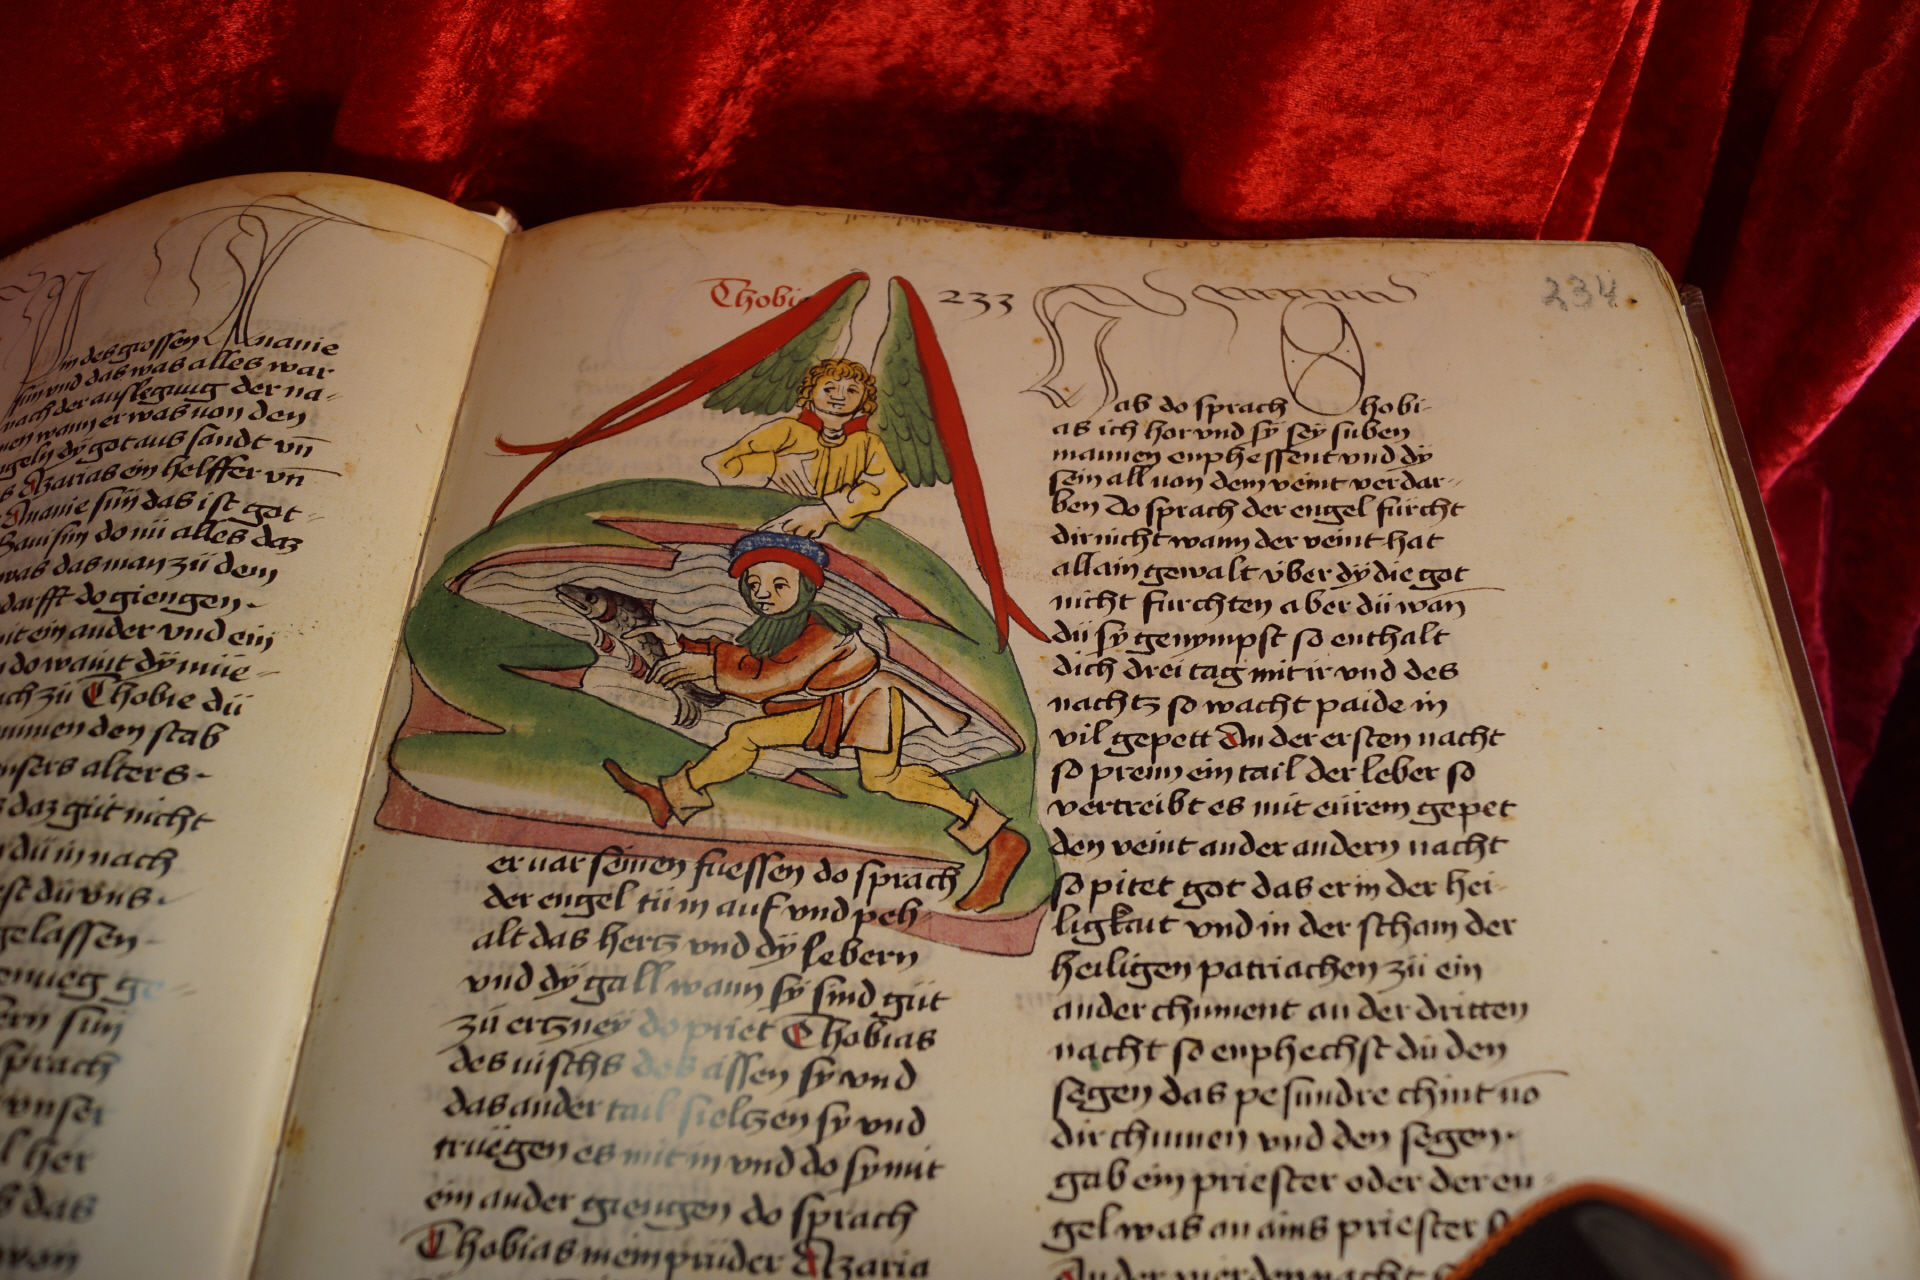 in des grossen Ananie
sun vnd das was alles war
nach der auslegung der na-
men wann er was von den
engeln dy got aus sandt vn̄
Azarias ein helffer vn̄
Ananie sun das ist got-
sun do nu alles daz
was das man zü dem
darfft do giengen-
mit ein ander vnd ein
do waint dy mue-
zü Thobie dü
den stab
vnsers alters-
daz güt nicht
dü in nach
dü vns.
gelassen-
genueg ge-
sun
sprach
vnser
her
das
von
Thobi
233
er var seinen fuessen do sprach
der engel tü in auf vnd peh-
alt das hertz vnd dy lebern
vnd dy gall wann sy sind güt
zü ertzney do priet Thobias
des vischs des assen sy vnd
das ander tail sieltzen sy vnd
truegen es mit in vnd do sy mit
ein ander giengen do sprach
Thobias mein prüder Azaria
234.
ab do sprach Thobi-
as ich hor vnd sy sey siben
mannen enphessent vnd dy
sein all von dem veint verdar-
ben do sprach der engel fürcht
dir nicht wann der veint hat
allain gewalt über dy die got
nicht furchten aber dü wan̄
dü sy genympst so enthalt
dich drei tag mit ir vnd des
nachtz so wacht paide in
vil gepett An der ersten nacht
so prenn ein tail der leber so
vertreibt es mit eürem gepet
den veint an der andern nacht
so pitet got das er in der hei-
ligkait vnd in der scham der
heiligen patriachen zü ein
ander chument an der dritten
nacht so enphechst dü den
segen das pesundre chint vō
dir chumen vnd den segen.
gab ein priester oder der en-
gel was an ains priester
An der vierden nacht